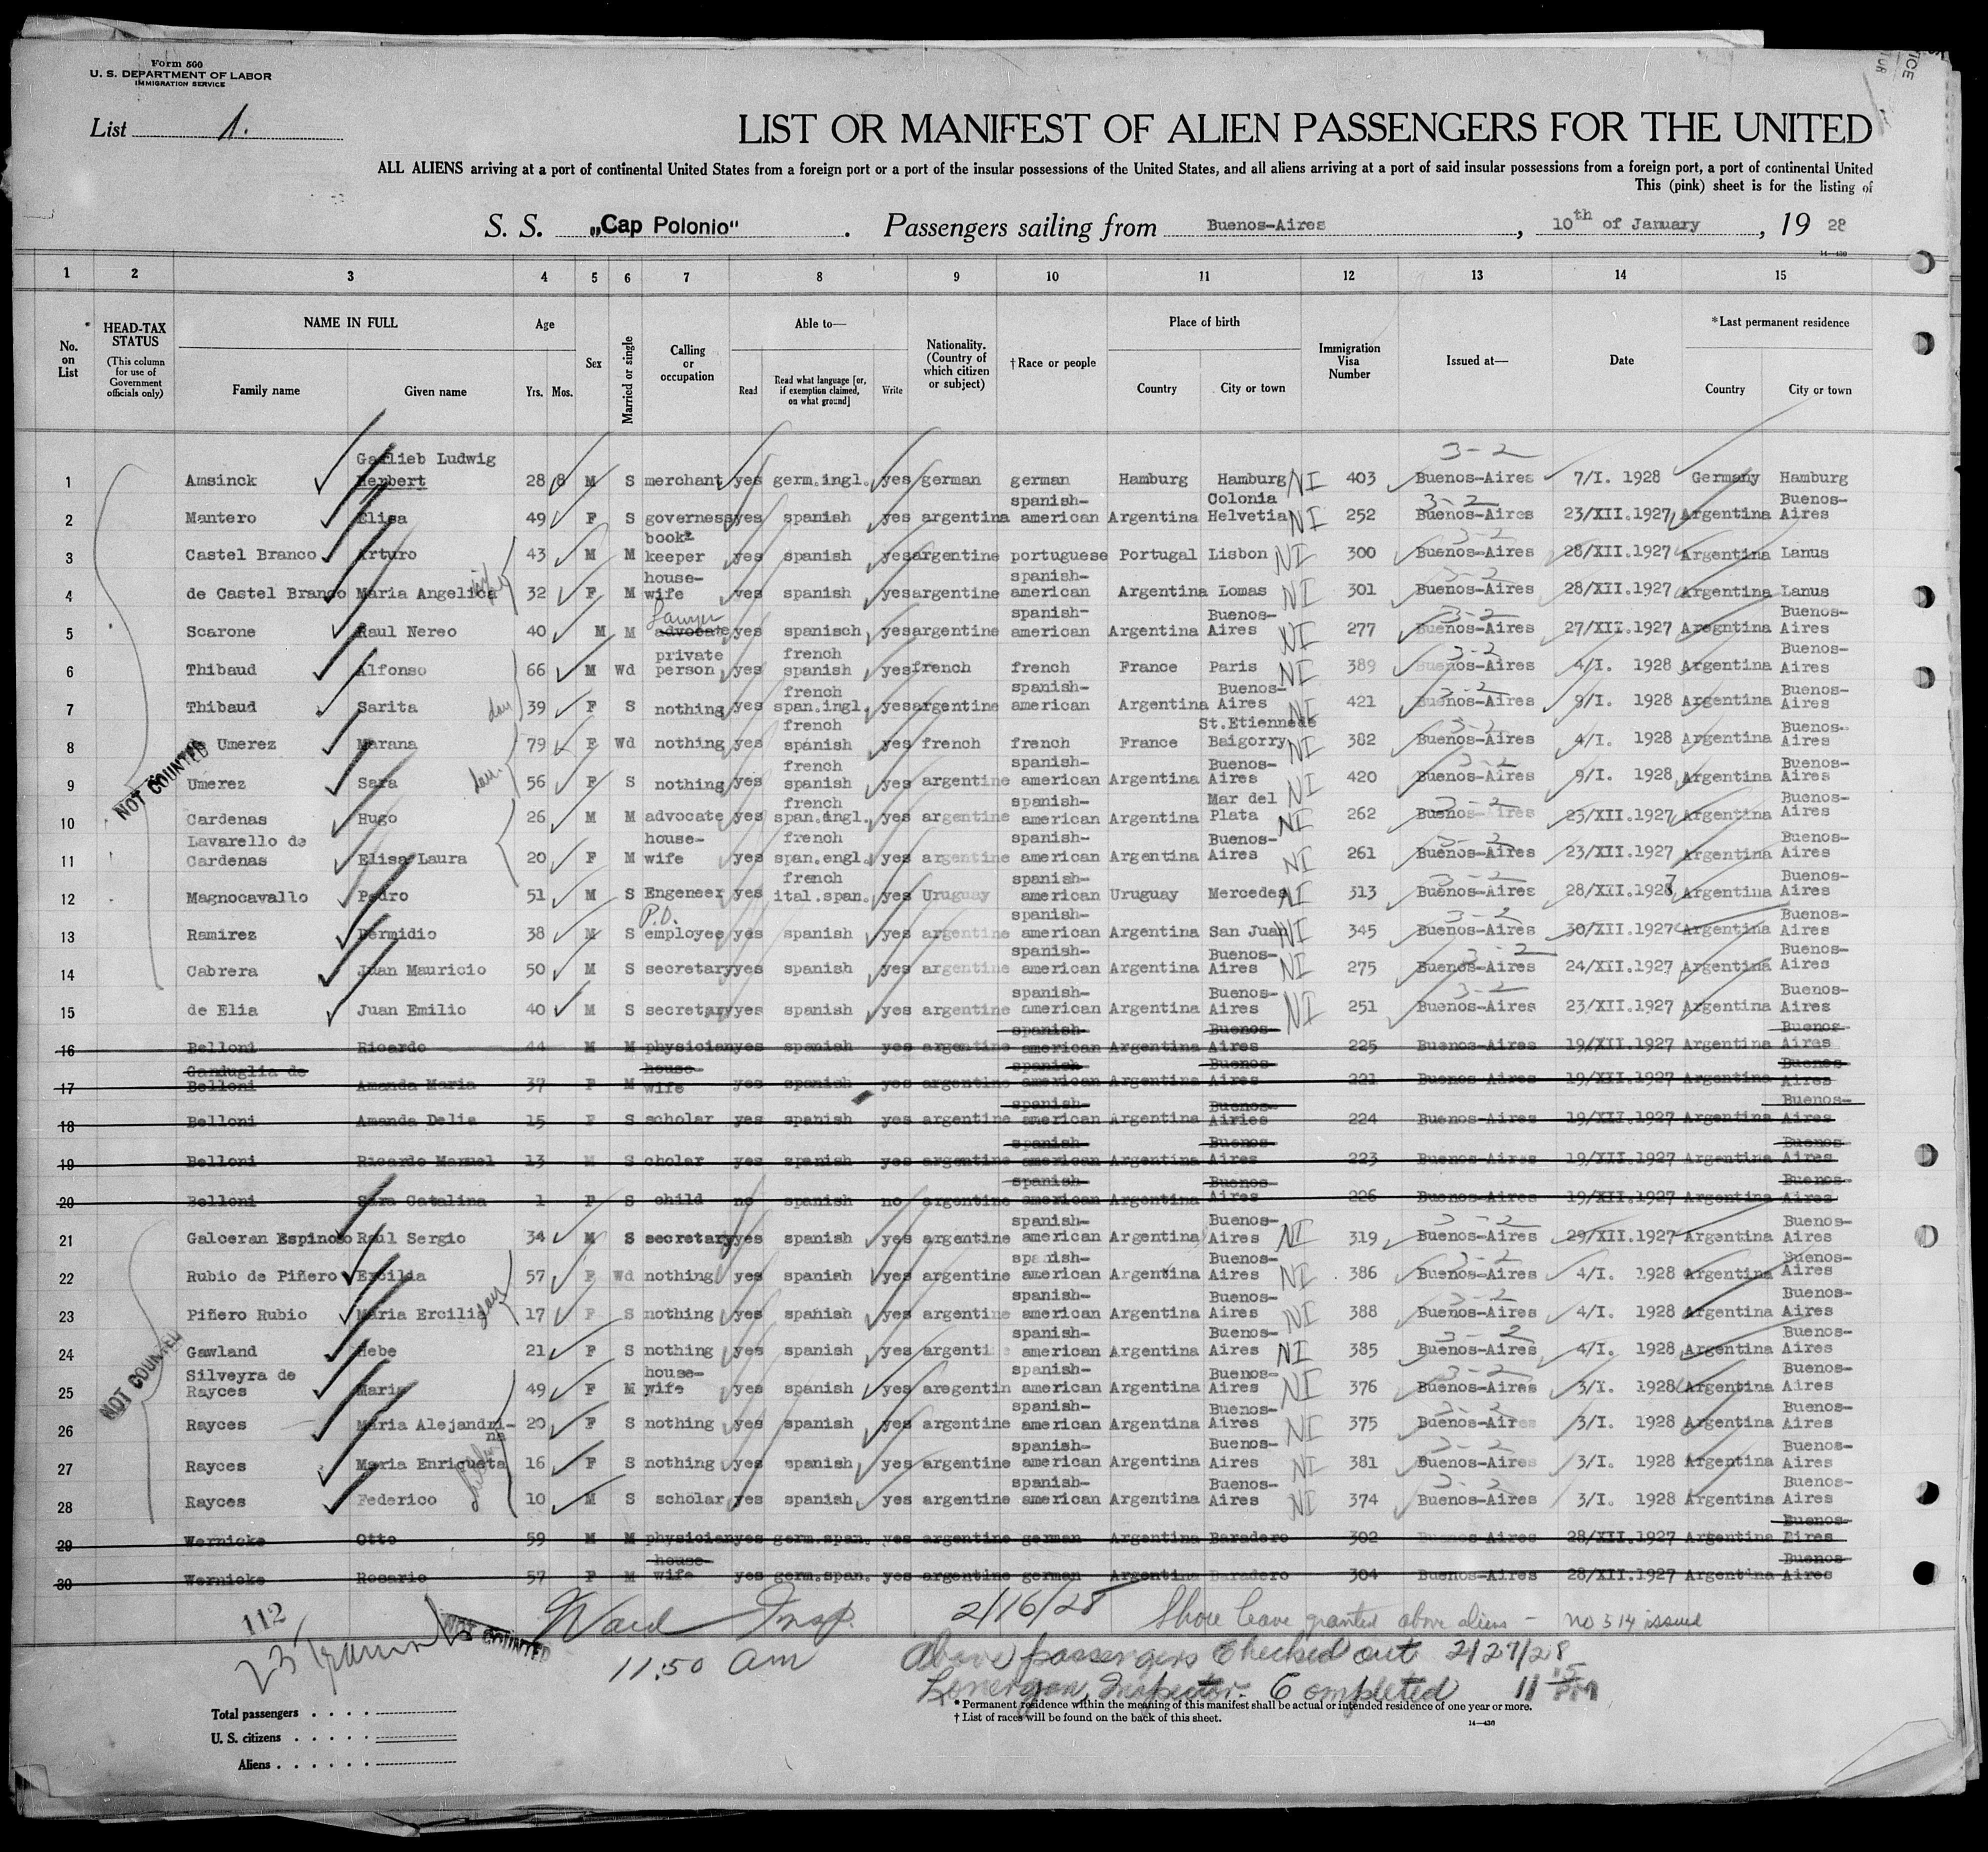 Form 500
U. S. DEPARTMENT OF LABOR
IMMIGRATION SERVICE
List 1.
LIST OR MANIFEST OF ALIEN PASSENGERS FOR THE UNITED
ALL ALIENS arriving at a port of continental United States from a foreign port or a port of the insular possessions of the United States, and all aliens arriving at a port of said insular possessions from a foreign port, a port of continental United
This (pink) sheet is for the listing of
S. S. „Cap Polonio" . Passengers sailing from Buenos-Aires , 10th of January , 19 28
14—430
1 2 3 4 5 6 7 8 9 10 11 12 13 14 15
No. on List HEAD-TAX STATUS (This column for use of Government officials only) NAME IN FULL Family name Given name Age Yrs. Mos. Sex Married or single Calling or occupation Able to— Read Read what language [or, if exemption claimed, on what ground] Write Nationality. (Country of which citizen or subject) † Race or people Place of birth Country City or town Immigration Visa Number Issued at— Date * Last permanent residence Country City or town
1 Amsinck Ludwig Herbert 28 8 M S merchant yes germ.ingl. yes german german Hamburg Hamburg NI 403 3-2 Buenos-Aires 7/I. 1928 Germany Hamburg
2 Mantero Elisa 49 F S governess yes spanish yes argentina spanish-american Argentina Colonia Helvetia NI 252 3-2 Buenos-Aires 23/XII.1927 Argentina Buenos-Aires
3 Castel Branco Arturo 43 M M book-keeper yes spanish yes argentine portuguese Portugal Lisbon NI 300 3-2 Buenos-Aires 28/XII.1927 Argentina Lanus
4 de Castel Branco Maria Angelica 32 F M house-wife yes spanish yes argentine spanish-american Argentina Lomas NI 301 3-2 Buenos-Aires 28/XII.1927 Argentina Lanus
5 Scarone Raul Nereo 40 M M Lawyer advocate yes spanisch yes argentine spanish-american Argentina Buenos-Aires NI 277 3-2 Buenos-Aires 27/XII.1927 Aregntina Buenos-Aires
6 Thibaud Alfonso 66 M Wd private person yes french spanish yes french french France Paris NI 389 3-2 Buenos-Aires 4/I. 1928 Argentina Buenos-Aires
7 Thibaud Sarita dau 39 F S nothing yes french span.ingl. yes argentine spanish-american Argentina Buenos-Aires NI 421 3-2 Buenos-Aires 9/I. 1928 Argentina Buenos-Aires
8 Umerez Marana 79 F Wd nothing yes french spanish yes french french France St.Etiennede Baigorry NI 382 3-2 Buenos-Aires 4/I. 1928 Argentina Buenos-Aires
9 Umerez Sara dau. 56 F S nothing yes french spanish yes argentine spanish-american Argentina Buenos-Aires NI 420 3-2 Buenos-Aires 9/I. 1928 Argentina Buenos-Aires
NOT COUNTED
10 Cardenas Hugo 26 M M advocate yes french span.angl. yes argentine spanish-american Argentina Mar del Plata NI 262 3-2 Buenos-Aires 23/XII.1927 Argentina Buenos-Aires
11 Lavarello de Cardenas Elisa Laura 20 F M house-wife yes french span.engl. yes argentine spanish-american Argentina Buenos-Aires NI 261 3-2 Buenos-Aires 23/XII.1927 Argentina Buenos-Aires
12 Magnocavallo Pedro 51 M S Engeneer yes french ital.span. yes Uruguay spanish-american Uruguay Mercedes NI 313 3-2 Buenos-Aires 28/XII.1927 Argentina Buenos-Aires
13 Ramirez Dermidio 38 M S P.O. employee yes spanish yes argentine spanish-american Argentina San Juan NI 345 3-2 Buenos-Aires 30/XII.1927 Argentina Buenos-Aires
14 Cabrera Juan Mauricio 50 M S secretary yes spanish yes argentine spanish-american Argentina Buenos-Aires NI 275 3-2 Buenos-Aires 24/XII.1927 Argentina Buenos-Aires
15 de Elia Juan Emilio 40 M S secretary yes spanish yes argentine spanish-american Argentina Buenos-Aires NI 251 3-2 Buenos-Aires 23/XII.1927 Argentina Buenos-Aires
16 Belloni Ricardo 44 M M physician yes spanish yes argentine spanish-american Argentina Buenos-Aires 225 Buenos-Aires 19/XII.1927 Argentina Buenos-Aires
17 Ganduglia de Belloni Amanda Maria 37 F M house-wife yes spanish yes argentine spanish-american Argentina Buenos-Aires 221 Buenos-Aires 19/XII.1927 Argentina Buenos-Aires
18 Belloni Amanda Delia 15 F S scholar yes spanish yes argentine spanish-american Argentina Buenos-Airies 224 Buenos-Aires 19/XII.1927 Argentina Buenos-Aires
19 Belloni Ricardo Manuel 13 M S cholar yes spanish yes argentine spanish-american Argentina Buenos-Aires 223 Buenos-Aires 19/XII.1927 Argentina Buenos-Aires
20 Belloni Sara Catalina 1 F S child no spanish no argentine spanish-american Argentina Buenos-Aires 226 Buenos-Aires 19/XII.1927 Argentina Buenos-Aires
21 Galceran Espinoso Raul Sergio 34 M S secretary yes spanish yes argentine spanish-american Argentina Buenos-Aires NI 319 3-2 Buenos-Aires 29/XII.1927 Argentina Buenos-Aires
22 Rubio de Piñero Ercilia 57 F Wd nothing yes spanish yes argentine spanish-american Argentina Buenos-Aires NI 386 3-2 Buenos-Aires 4/I. 1928 Argentina Buenos-Aires
23 Piñero Rubio Maria Ercilia dau 17 F S nothing yes spanish yes argentine spanish-american Argentina Buenos-Aires NI 388 3-2 Buenos-Aires 4/I. 1928 Argentina Buenos-Aires
24 Gawland Hebe 21 F S nothing yes spanish yes argentine spanish-american Argentina Buenos-Aires NI 385 3-2 Buenos-Aires 4/I. 1928 Argentina Buenos-Aires
NOT COUNTED
25 Silveyra de Rayces Maria 49 F M house-wife yes spanish yes aregentin spanish-american Argentina Buenos-Aires NI 376 3-2 Buenos-Aires 3/I. 1928 Argentina Buenos-Aires
26 Rayces Maria Alejandri-na 20 F S nothing yes spanish yes argentine spanish-american Argentina Buenos-Aires NI 375 3-2 Buenos-Aires 3/I. 1928 Argentina Buenos-Aires
27 Rayces Maria Enriqueta 16 F S nothing yes spanish yes argentine spanish-american Argentina Buenos-Aires NI 381 3-2 Buenos-Aires 3/I. 1928 Argentina Buenos-Aires
28 Rayces Federico 10 M S scholar yes spanish yes argentine spanish-american Argentina Buenos-Aires NI 374 3-2 Buenos-Aires 3/I. 1928 Argentina Buenos-Aires
29 Wernicke Otto 59 M M physician yes germ.span. yes argentine german Argentina Baradero 302 Buenos-Aires 28/XII.1927 Argentina Buenos-Eires
30 Wernicke Rosario 57 F M house-wife yes germ.span. yes argentine german Argentina Baradero 304 Buenos-Aires 28/XII.1927 Argentina Buenos-Aires
112 NOT COUNTED Ward Insp. 2/16/28 Shore leave granted above aliens - no 514 issued
23 11.50 am Above passengers checked out 2/27/28
Lonergan, Inspector. Completed 11 15 PM
* Permanent residence within the meaning of this manifest shall be actual or intended residence of one year or more.
† List of races will be found on the back of this sheet.
14—430
Total passengers . . . .
U. S. citizens . . . . .
Aliens . . . . . .